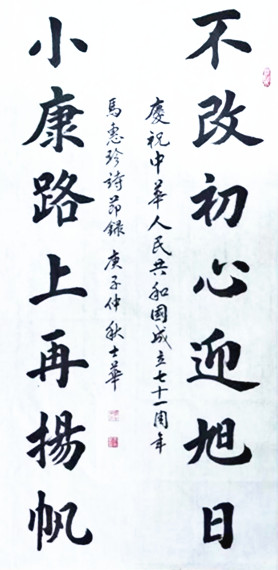 不改初心迎旭日
小康路上再揚帆
慶祝中華人民共和國成立七十一周年
馬惠珍詩節錄 庚子仲秋士華